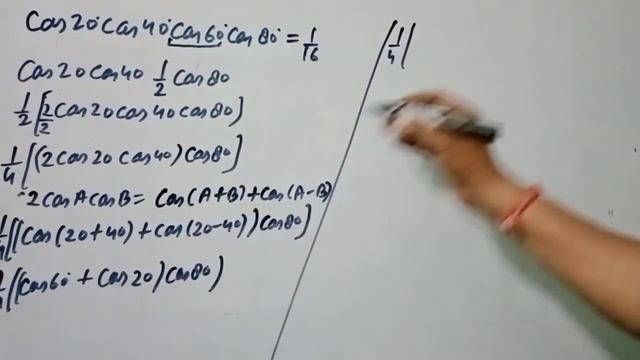 Cos20°Cos40°Cos60°Cos80° = 1/16
Cos20 Cos40 1/2 Cos80
1/2[2/2 Cos20 Cos40 Cos80]
1/4[(2Cos20 Cos40)Cos80]
2CosACosB = Cos(A+B)+Cos(A-B)
1/4[(Cos(20+40)+Cos(20-40))Cos80]
1/4((Cos60+Cos20)Cos80)
1/4(